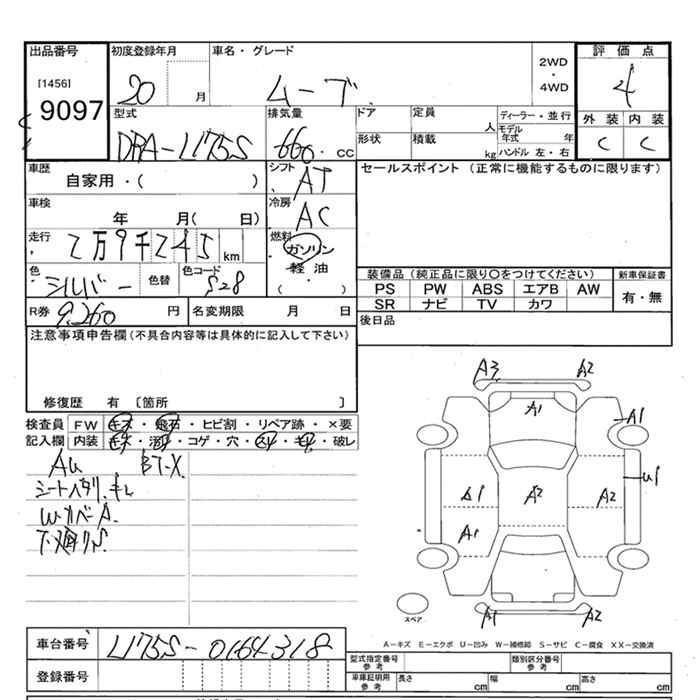 出品番号 初度登録年月 車名・グレード 2WD・4WD 評価点
[1456] 20 月 ムーブ 4
9097
型式 排気量 ドア 定員 人 ディーラー・並行 外装 内装
DBA-L175S 660 cc 形状 積載 kg モデル年式 年 C C
ハンドル 左・右
車歴 シフト セールスポイント (正常に機能するものに限ります)
自家用・( ) AT
車検 冷房
年 月( 日) AC
走行 2万9千245km 燃料
ガソリン
色 シルバー 色替 色コード S28 軽油
・( )
装備品(純正品に限り○をつけてください) 新車保証書
PS PW ABS エアB AW 有・無
SR ナビ TV カワ
R券 9,260 円 名変期限 月 日 後日品
注意事項申告欄(不具合内容等は具体的に記入して下さい)
修復歴 有 〔箇所 〕
検査員 FW キズ・飛石・ヒビ割・リペア跡・×要
記入欄 内装 キズ・汚れ・コゲ・穴・スレ・キレ・破レ
シート
下廻り
A3 A2
A1 A1
A1 A2 A2 U1
A1
スペア A1 A2
A-キズ E-エクボ U-凹み W-補修跡 S-サビ C-腐食 XX-交換済
車台番号 L175S-0164318
型式指定番号 参考 類別区分番号 参考
登録番号 車庫証明用 参考 長さ cm 幅 cm 高さ cm